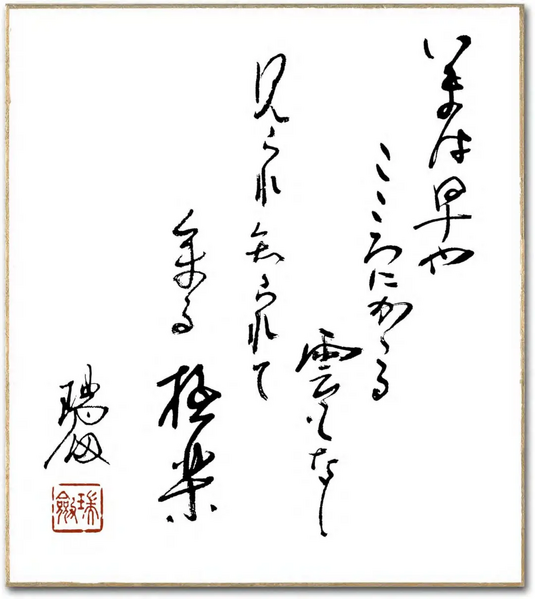 いまは早や
こころにかゝる
雲もなし
見られ知られて
参る極楽
瑞劔